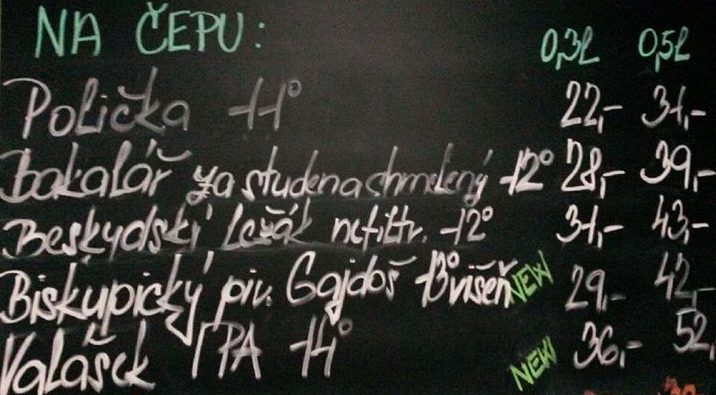 NA ČEPU: 0,3l 0,5l
Polička 11° 22,- 31,-
Bakalář za studena chmelený 12° 28,- 39,-
Beskydský ležák nefiltr. 12° 31,- 43,-
Biskupický piv. Gajdoš 13° višeň NEW 29,- 42,-
Valášek IPA 14° NEW 36,- 52,